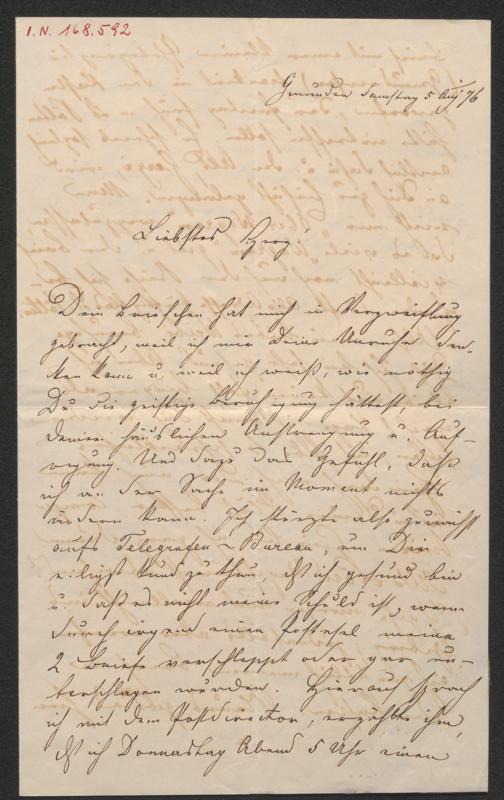 I.N. 168.592
Gmunden Samstag 5 Aug 76
Liebstes Herz!
Dein Briefchen hat mich in Verzweiflung
gebracht, weil ich mir Deine Unruhe den-
ken kann u. weil ich weiß, wie nöthig
Du die geistige Beruhigung hättest, bei
Deiner häuslichen Anstrengung u. Auf-
regung. Und dazu das Gefühl, daß
ich an der Sache im Moment nichts
ändern kann. Ich stürzte also zunächst
aufs Telegrafen-Bureau, um Dir
eiligst kund zu thun, daß ich gesund bin
u. daß es nicht meine Schuld ist, wenn
durch irgend einen Postesel meine
2 Briefe verschleppt oder gar un-
terschlagen wurden. Hierauf sprach
ich mit dem Postdirector, erzählte ihm,
daß ich Donnerstag Abend 5 Uhr einen